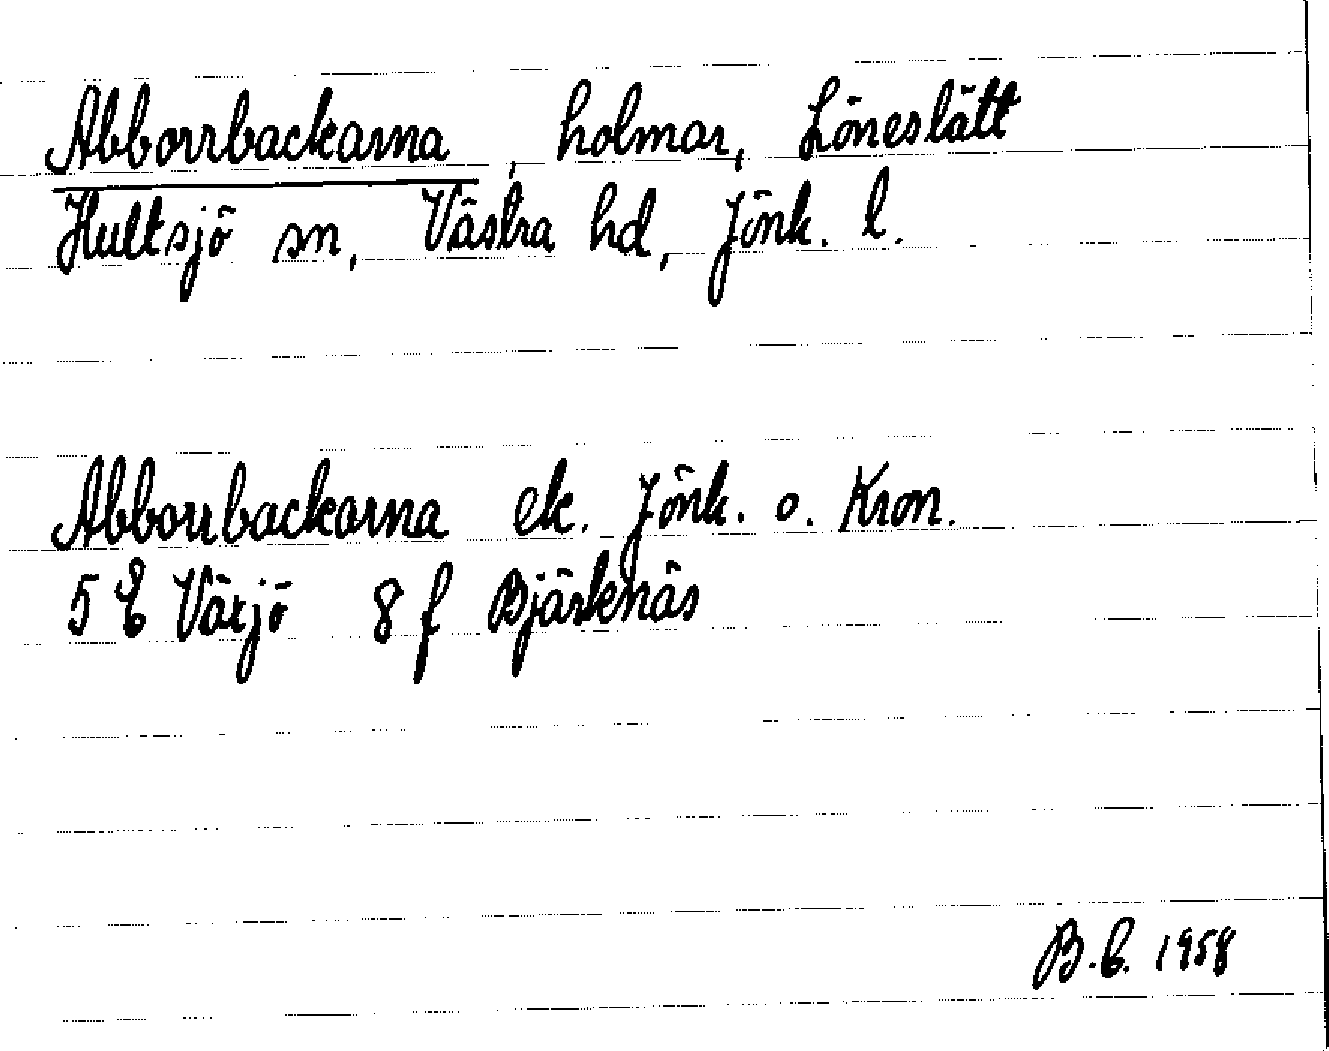 Abborrbackarna, holmar, Löneslätt
Hultsjö sn, Västra hd, Jönk. l.
Abborrbackarna ek. Jönk. o. Kron.
5 E Växjö 8 f Bjärkenäs
B.E. 1958